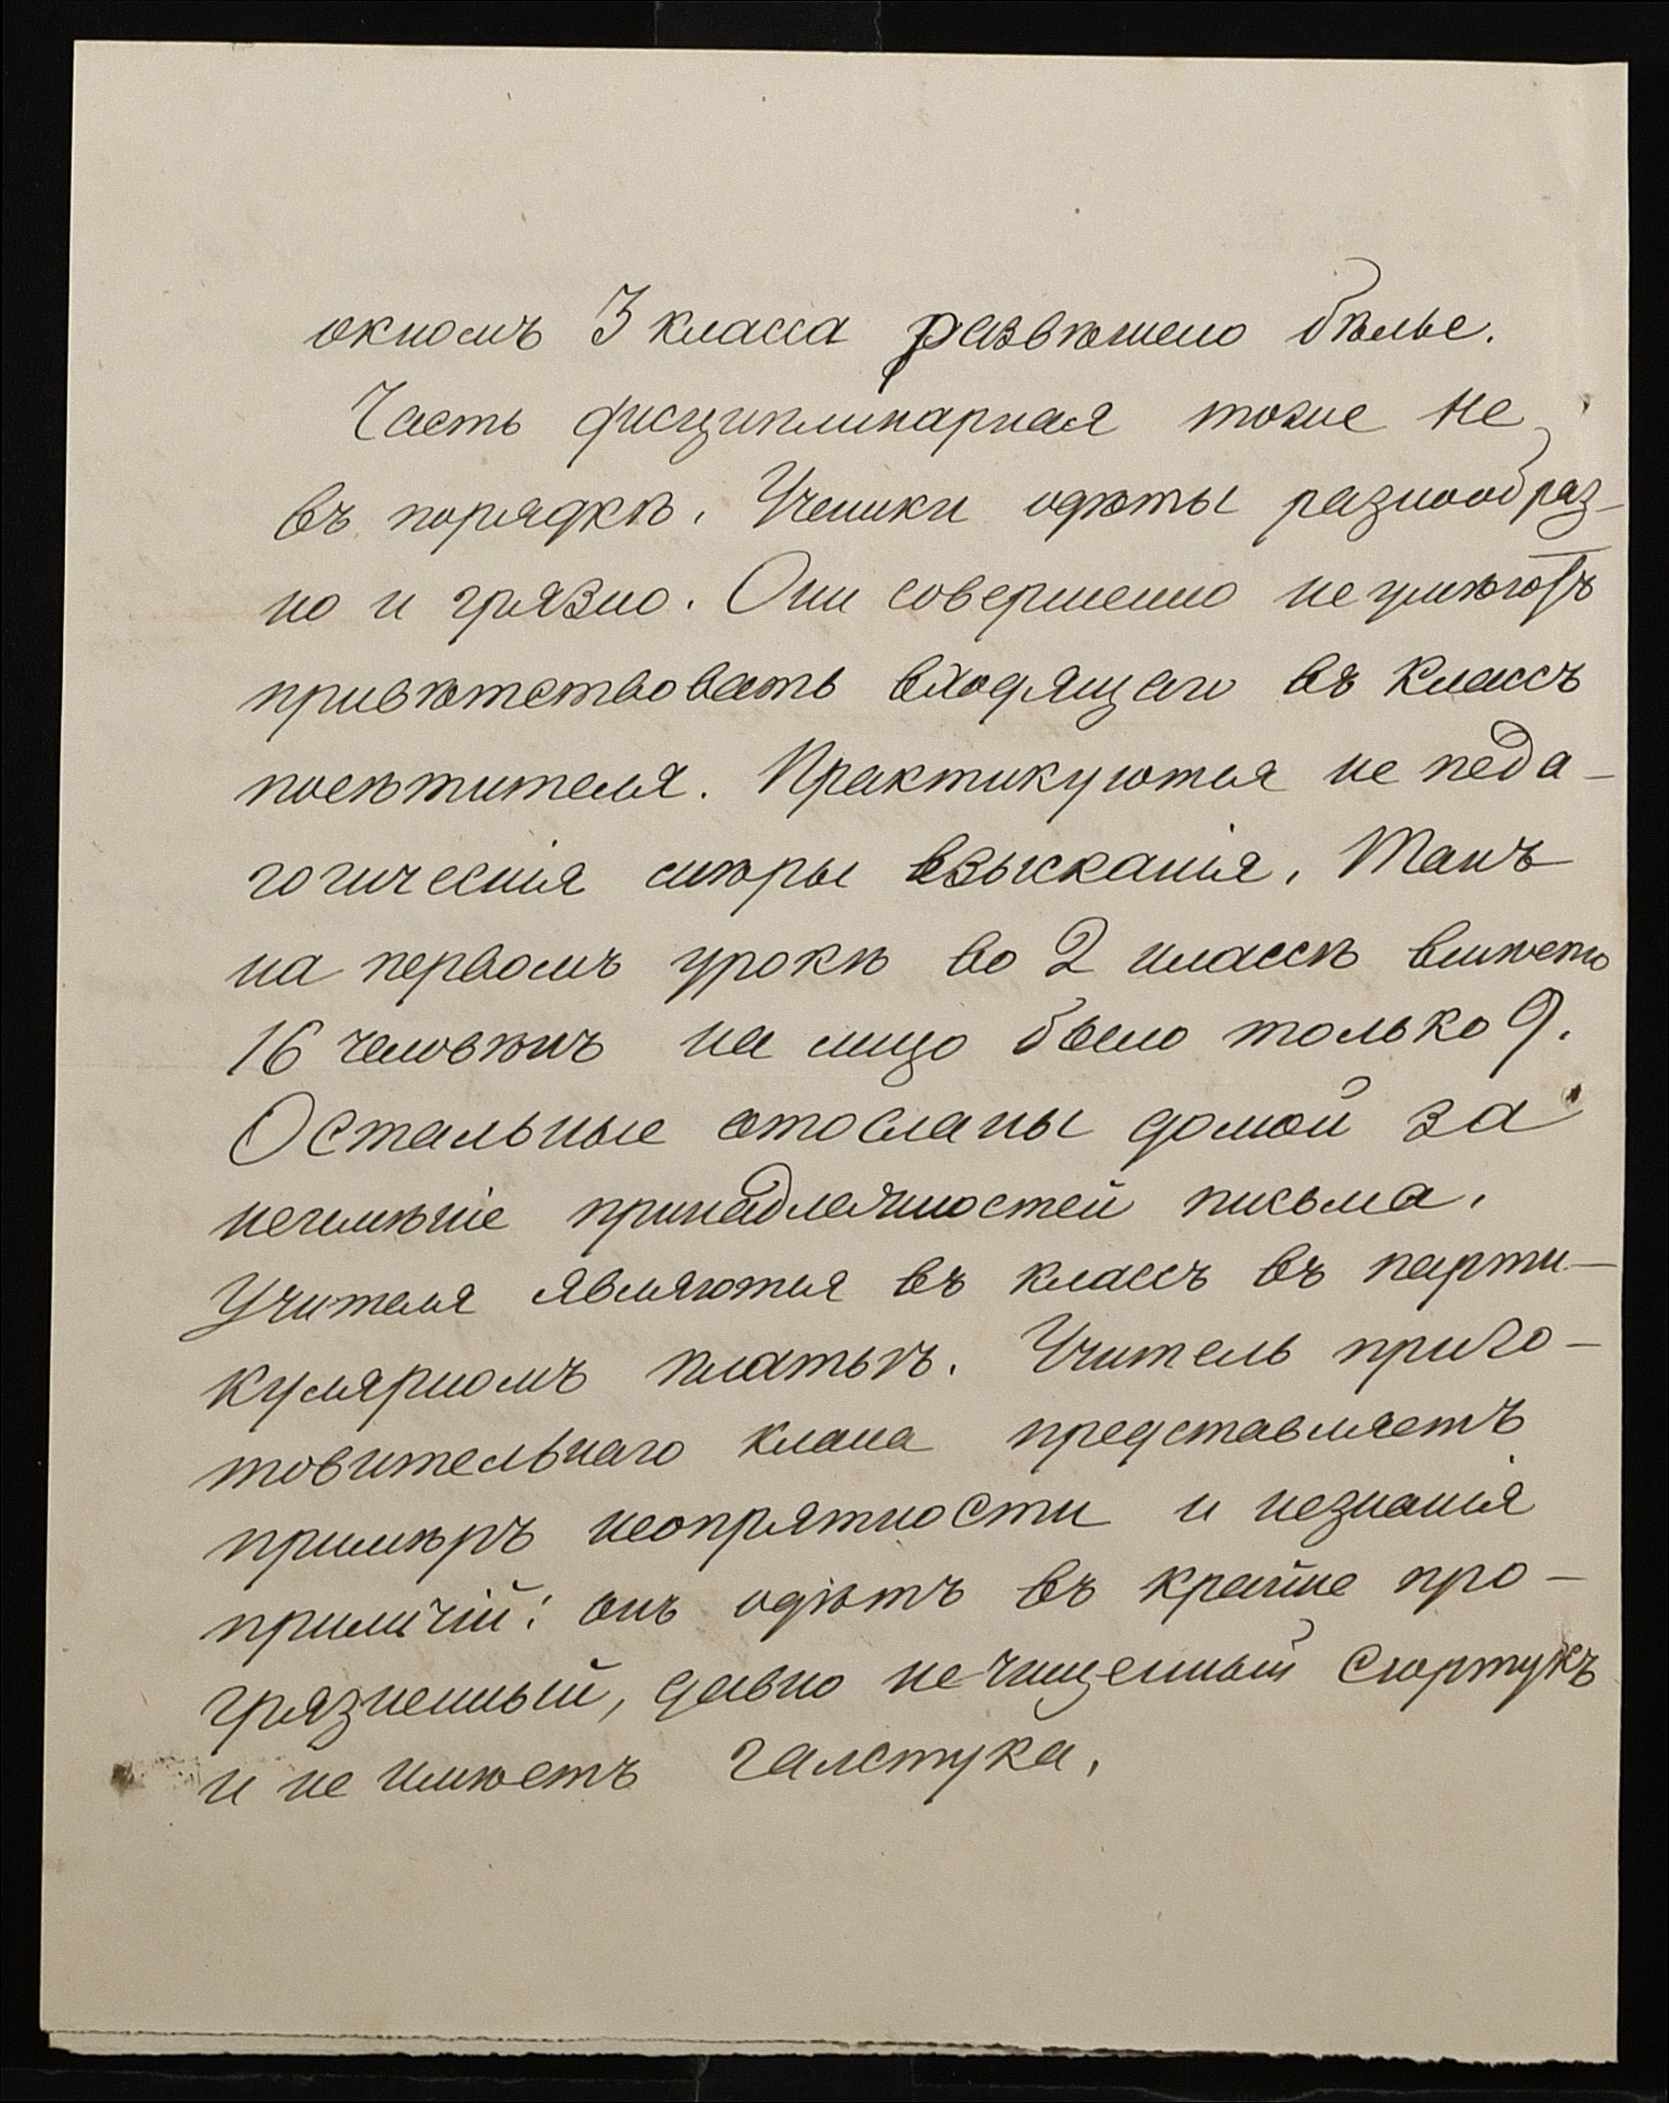 окномъ 3 класса развѣшено бѣлье.
Часть дисциплинарная тоже не
въ порядкѣ. Ученики одѣты разнообраз-
но и грязно. Они совершенно не умѣютъ
привѣтствовать входящаго въ классъ
посѣтителя. Практикуются не педа-
гогическія мѣры взысканія. Такъ
на первомъ урокѣ во 2 классѣ вмѣсто
16 человѣкъ на лицо было только 9.
Остальные отосланы домой за
неимѣніе принадлежностей письма.
Учителя являются въ классъ въ парти-
кулярномъ платьѣ. Учитель приго-
товительнаго класса представляетъ
примѣръ неопрятности и незнанія
приличій: онъ одѣтъ въ крайне про-
грязненный, давно нечищенный сюртукъ
и не имѣетъ галстука.